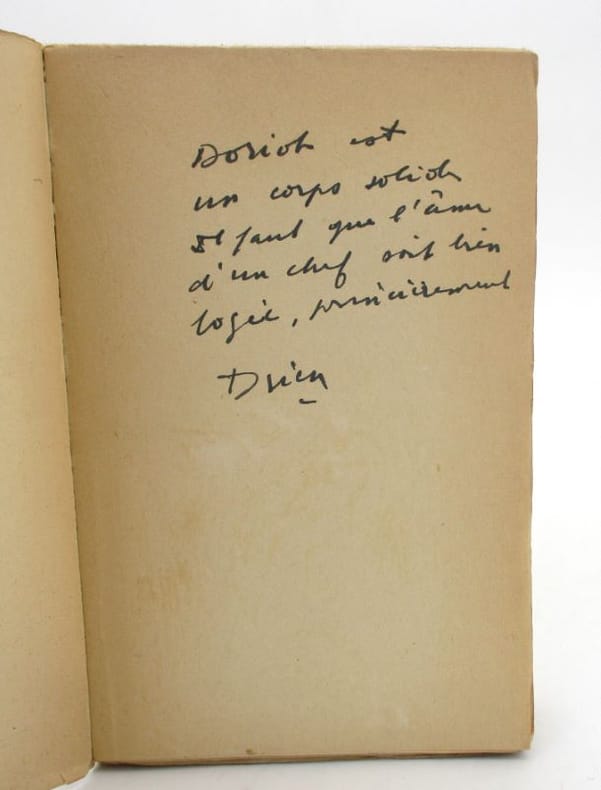 Doriot est
un corps solide
Il faut que l'âme
d'un chef soit bien
logée, princièrement
Drieu